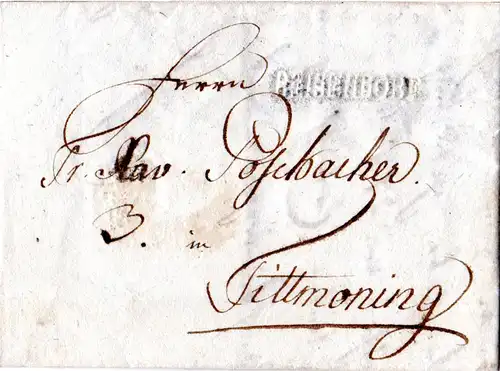 Herrn
Fr. Xav. Poschacher.
3. in
Tittmoning